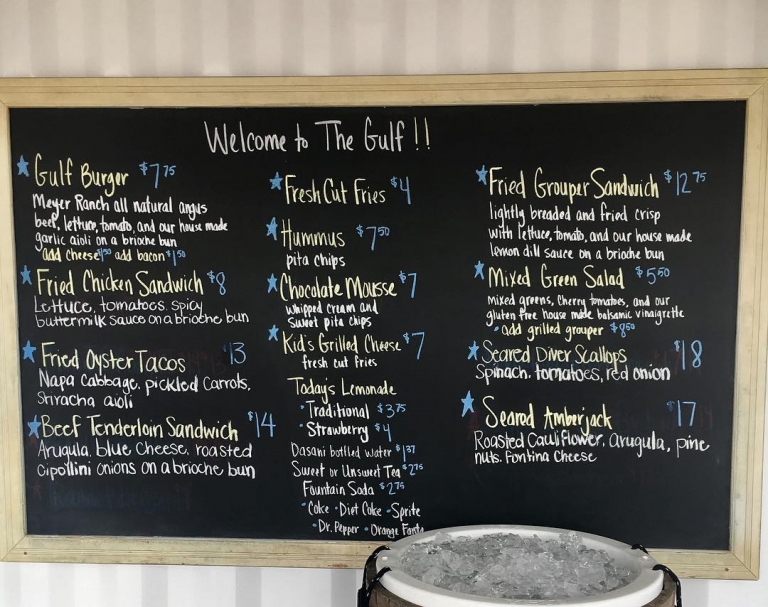 Welcome to The Gulf !!
Gulf Burger $7.75
Meyer Ranch all natural angus
beef, lettuce, tomato, and our house made
garlic aioli on a brioche bun
add cheese $1.50 add bacon $1.50
Fried Chicken Sandwich $8
Lettuce, tomatoes, spicy
buttermilk sauce on a brioche bun
Fried Oyster Tacos $13
Napa Cabbage, pickled Carrots,
Sriracha aioli
Beef Tenderloin Sandwich $14
Arugula, blue cheese, roasted
cipollini onions on a brioche bun
Fresh Cut Fries $4
Hummus $7.50
pita chips
Chocolate Mousse $7
whipped cream and
sweet pita chips
Kid's Grilled Cheese $7
fresh cut fries
Today's Lemonade
• Traditional $3.75
• Strawberry $4
Dasani bottled water $1.87
Sweet or Unsweet Tea $2.75
Fountain Soda $2.75
• Coke • Diet Coke • Sprite
• Dr. Pepper • Orange Fanta
Fried Grouper Sandwich $12.75
lightly breaded and fried crisp
with lettuce, tomato, and our house made
lemon dill sauce on a brioche bun
Mixed Green Salad $5.50
mixed greens, cherry tomatoes, and our
gluten free house made balsamic vinaigrette
• add grilled grouper $8.50
Seared Diver Scallops $18
Spinach, tomatoes, red onion
Seared Amberjack $17
Roasted Cauliflower, arugula, pine
nuts, Fontina Cheese